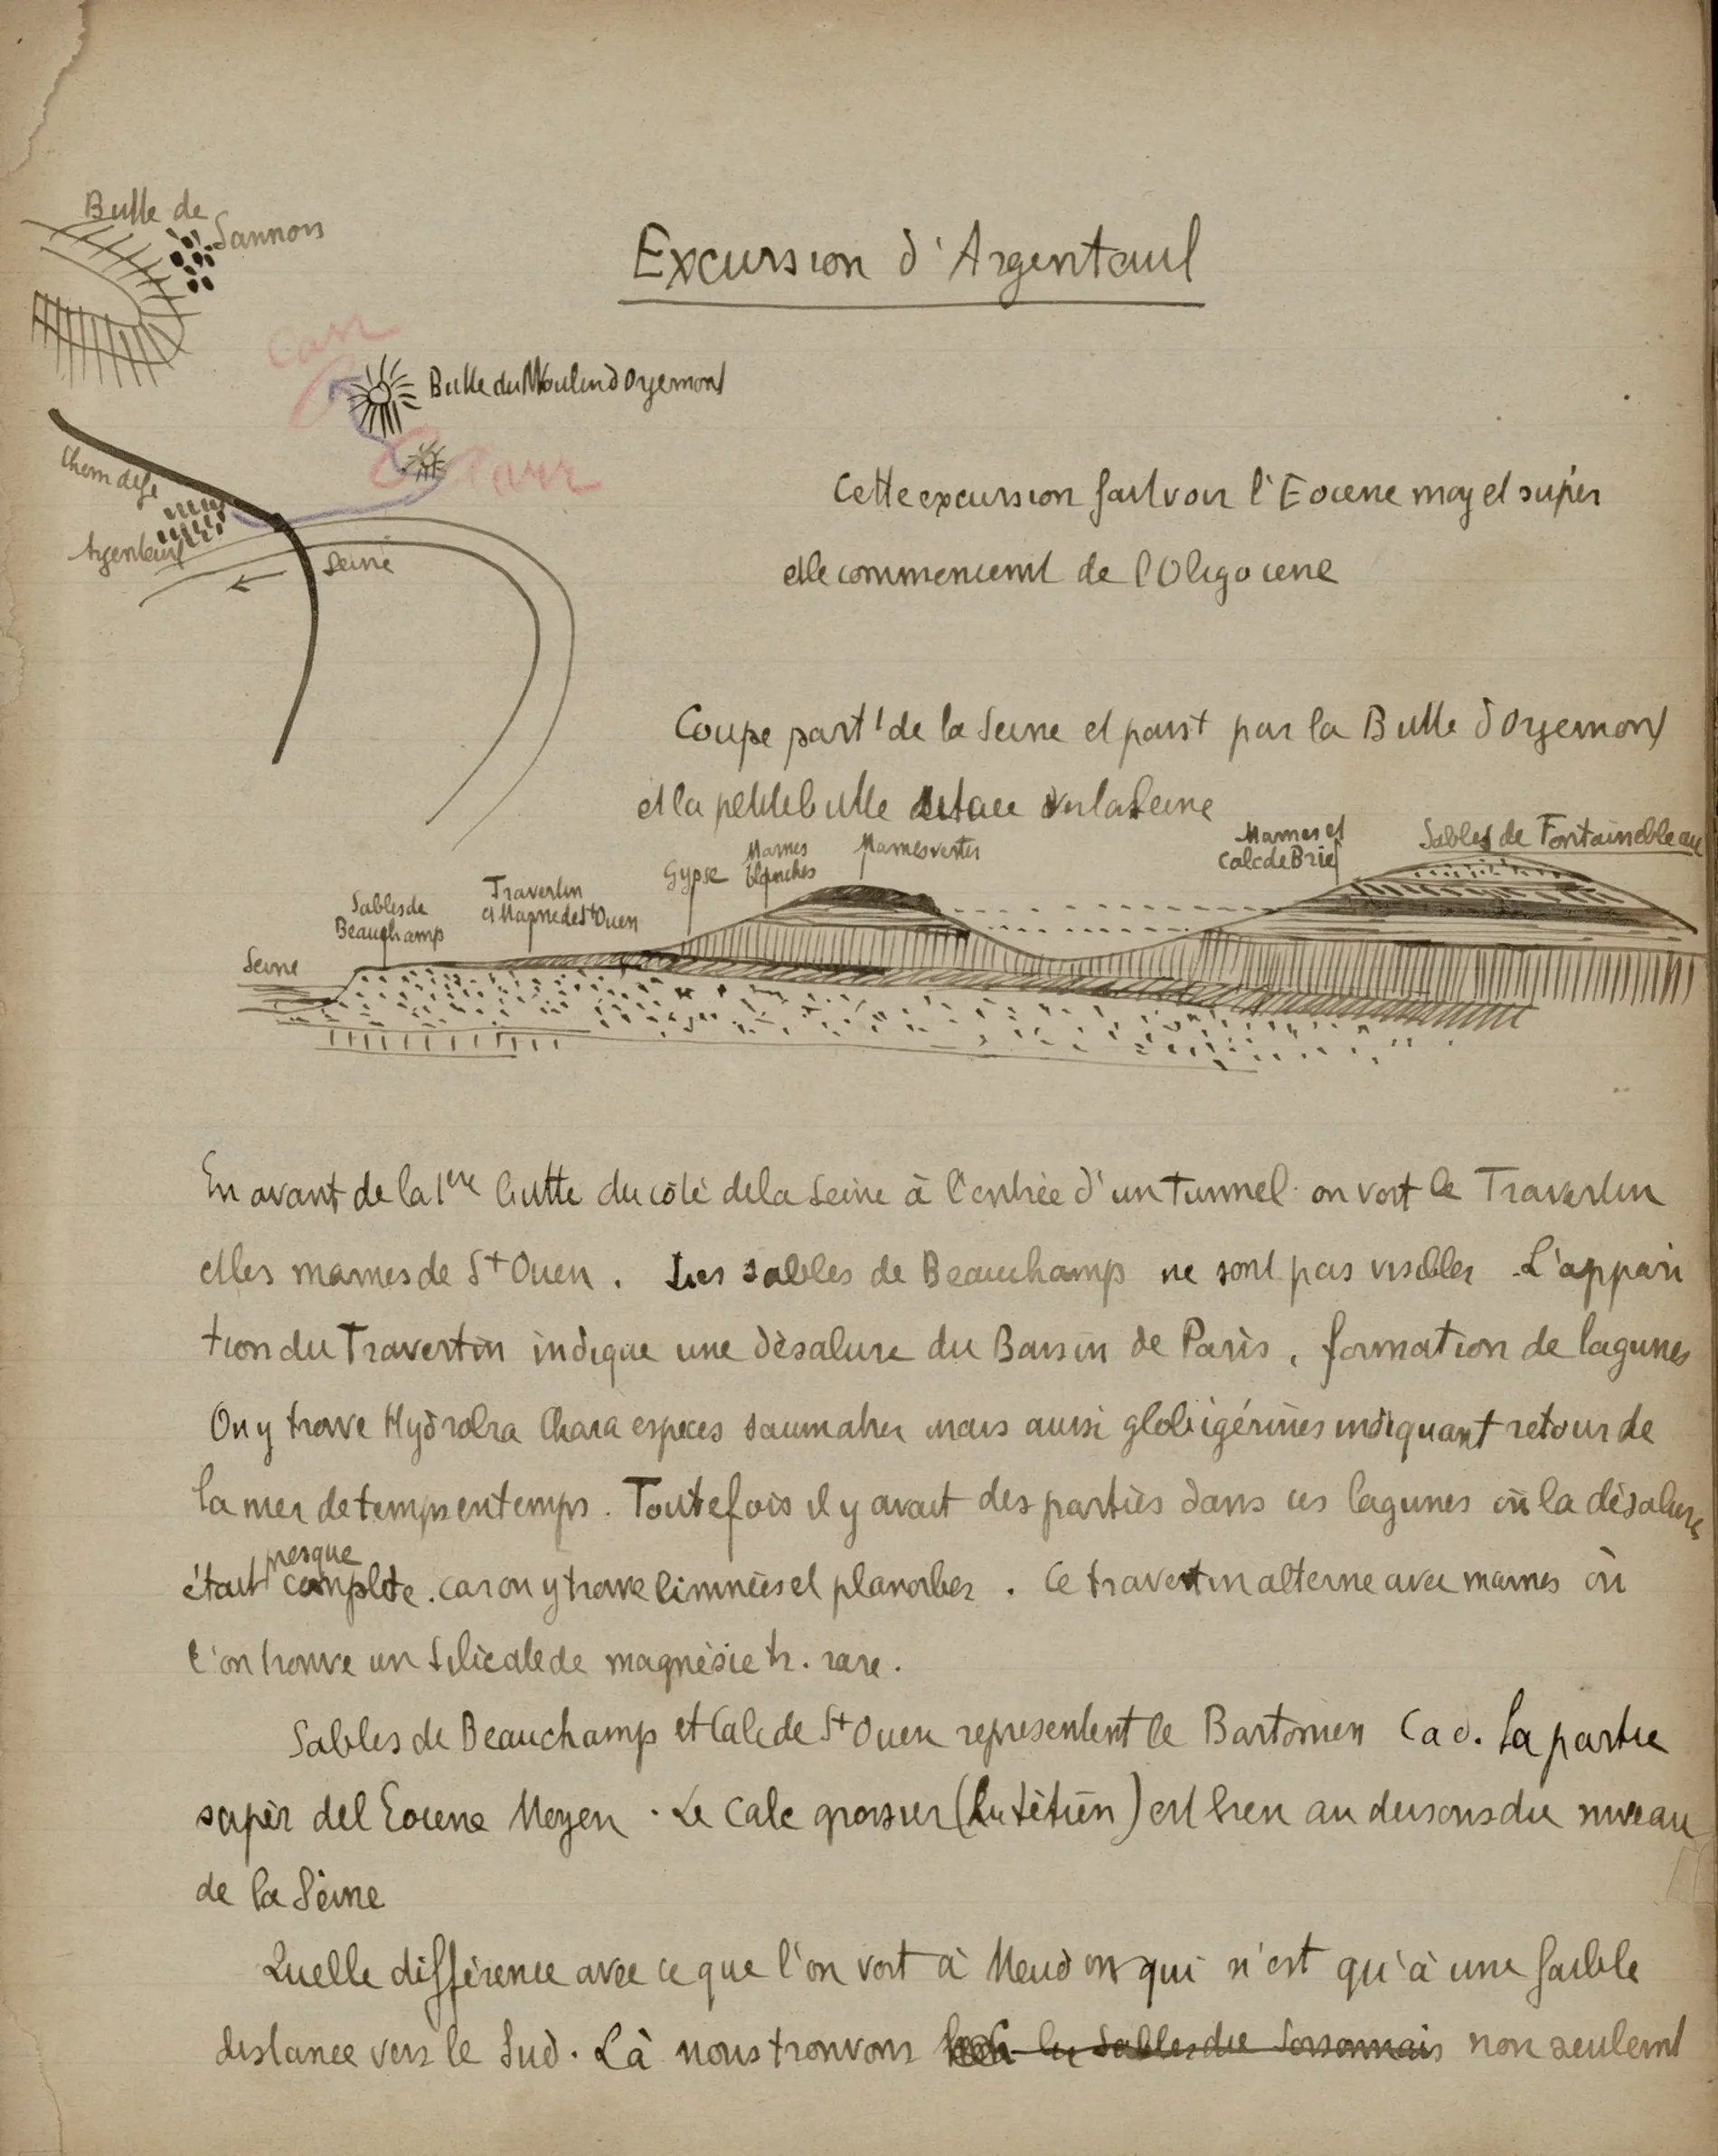 Butte de
Sannois
Excursion d'Argenteuil
Carr
Butte du Moulin d'Orgemont
Carr
Chem de fe
Argenteuil
Seine
Cette excursion fait voir l'Eocene moy et supér
et le commencemt de l'Oligocene
Coupe part t de la Seine et passt par la Butte d'Orgemont
et la petite butte située vers la Seine
Marnes et
Calc de Brie
Sables de Fontainebleau
Gypse
Marnes
blanches
Marnes vertes
Travertin
et Marne de St Ouen
Sables de
Beauchamp
Seine
En avant de la 1ere butte du côté de la Seine à l'entrée d'un tunnel on voit le Travertin
et les marnes de St Ouen. Les sables de Beauchamp ne sont pas visibles L'appari
tion du Travertin indique une désalure du Bassin de Paris, formation de lagunes
On y trouve Hydrobia Chara espèces saumatres mais aussi globigérines indiquant retour de
la mer de temps en temps. Toutefois il y avait des parties dans ces lagunes où la désalure
était presque complète. car on y trouve limnées et planorbes. Ce travertin alterne avec marnes où
l'on trouve un silicate de magnésie tr. rare.
Sables de Beauchamp et Calc de St Ouen representent le Bartonien C a d. la partie
supér de l'Eocene Moyen. Le Calc grossier (Lutétien) est bien au dessous du niveau
de la Seine
Quelle différence avec ce que l'on voit à Meudon qui n'est qu'à une faible
distance vers le Sud. Là nous trouvons les Sables du Soissonnais non seulemt